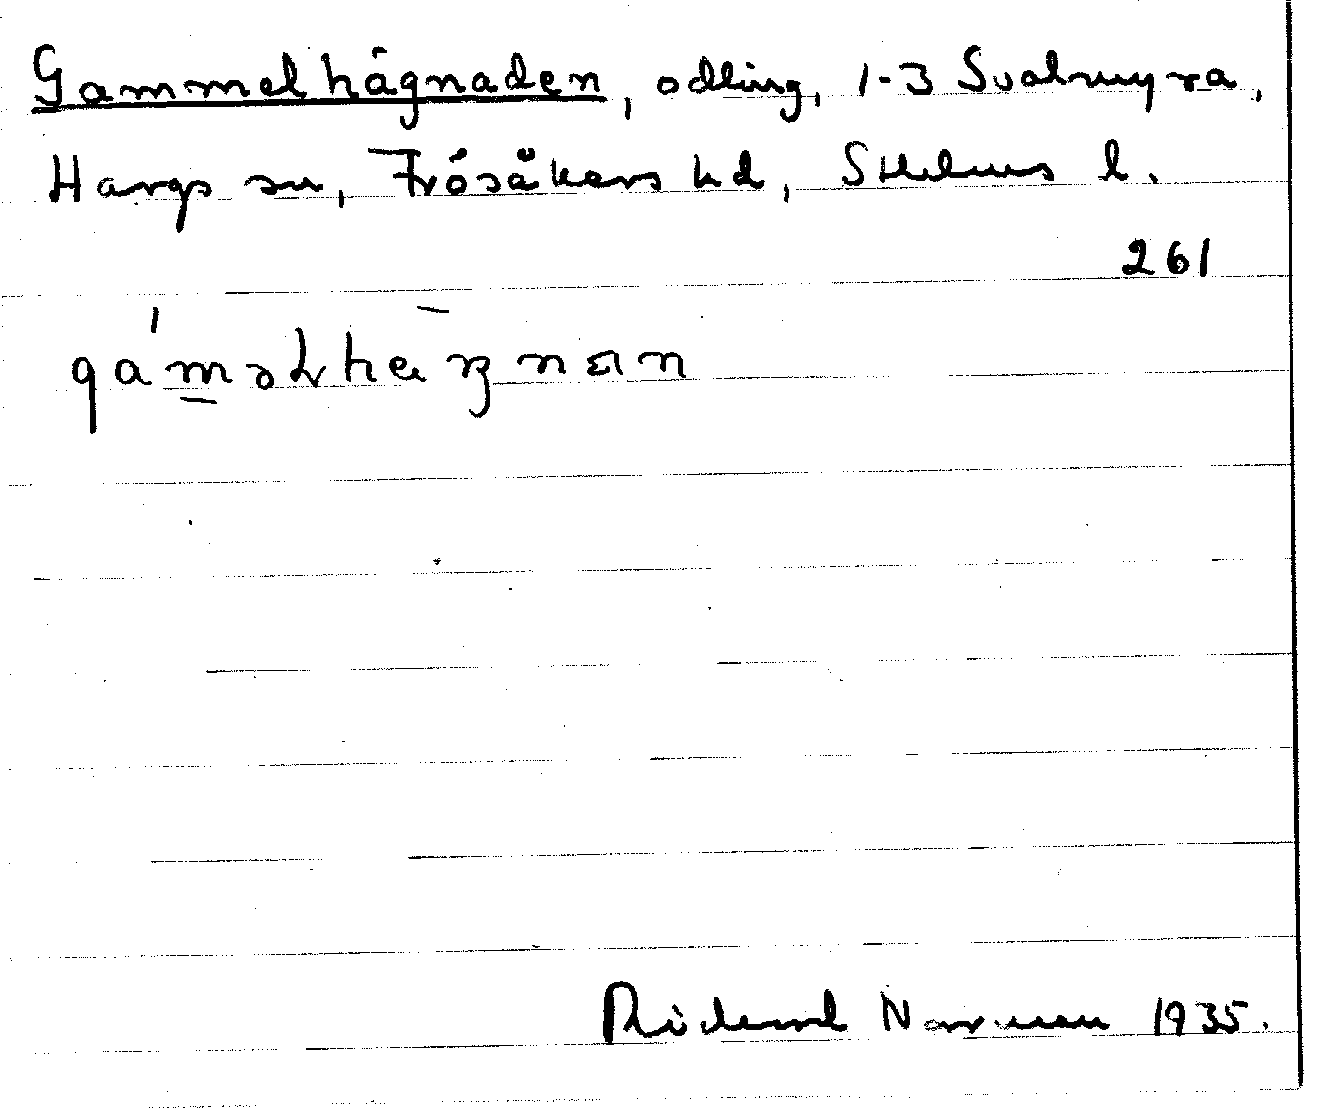 Gammelhägnaden, odling, 1-3 Svalmyra,
Hargs sn, Frösåkers hd, Sthlms l.
261
Rickard Norrman 1935.